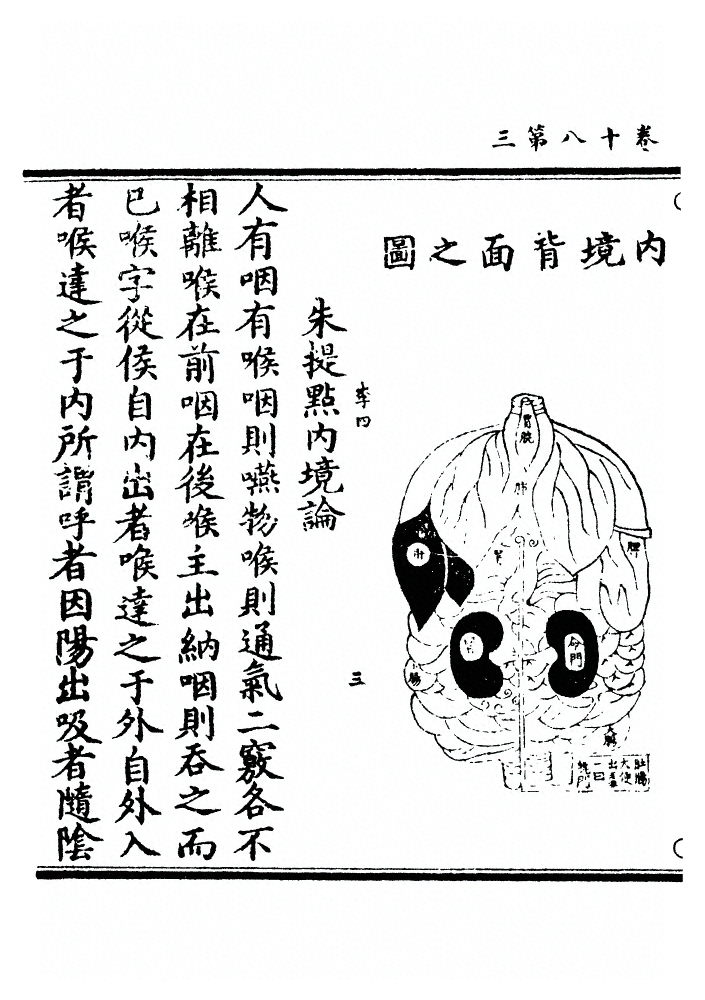 卷十八第三
内境背面之圖
胃脘
肺
腎
肝
脾
命門
腸
大腸
肚腸
大便
出
一曰
門
李四
三
朱提㸃内境論
人有咽有喉咽則嚥物喉則通氣二竅各不
相離喉在前咽在後喉主出納咽則吞之而
巳喉字從侯自内出者喉達之于外自外入
者喉達之于内所謂呼者因陽出吸者隨陰